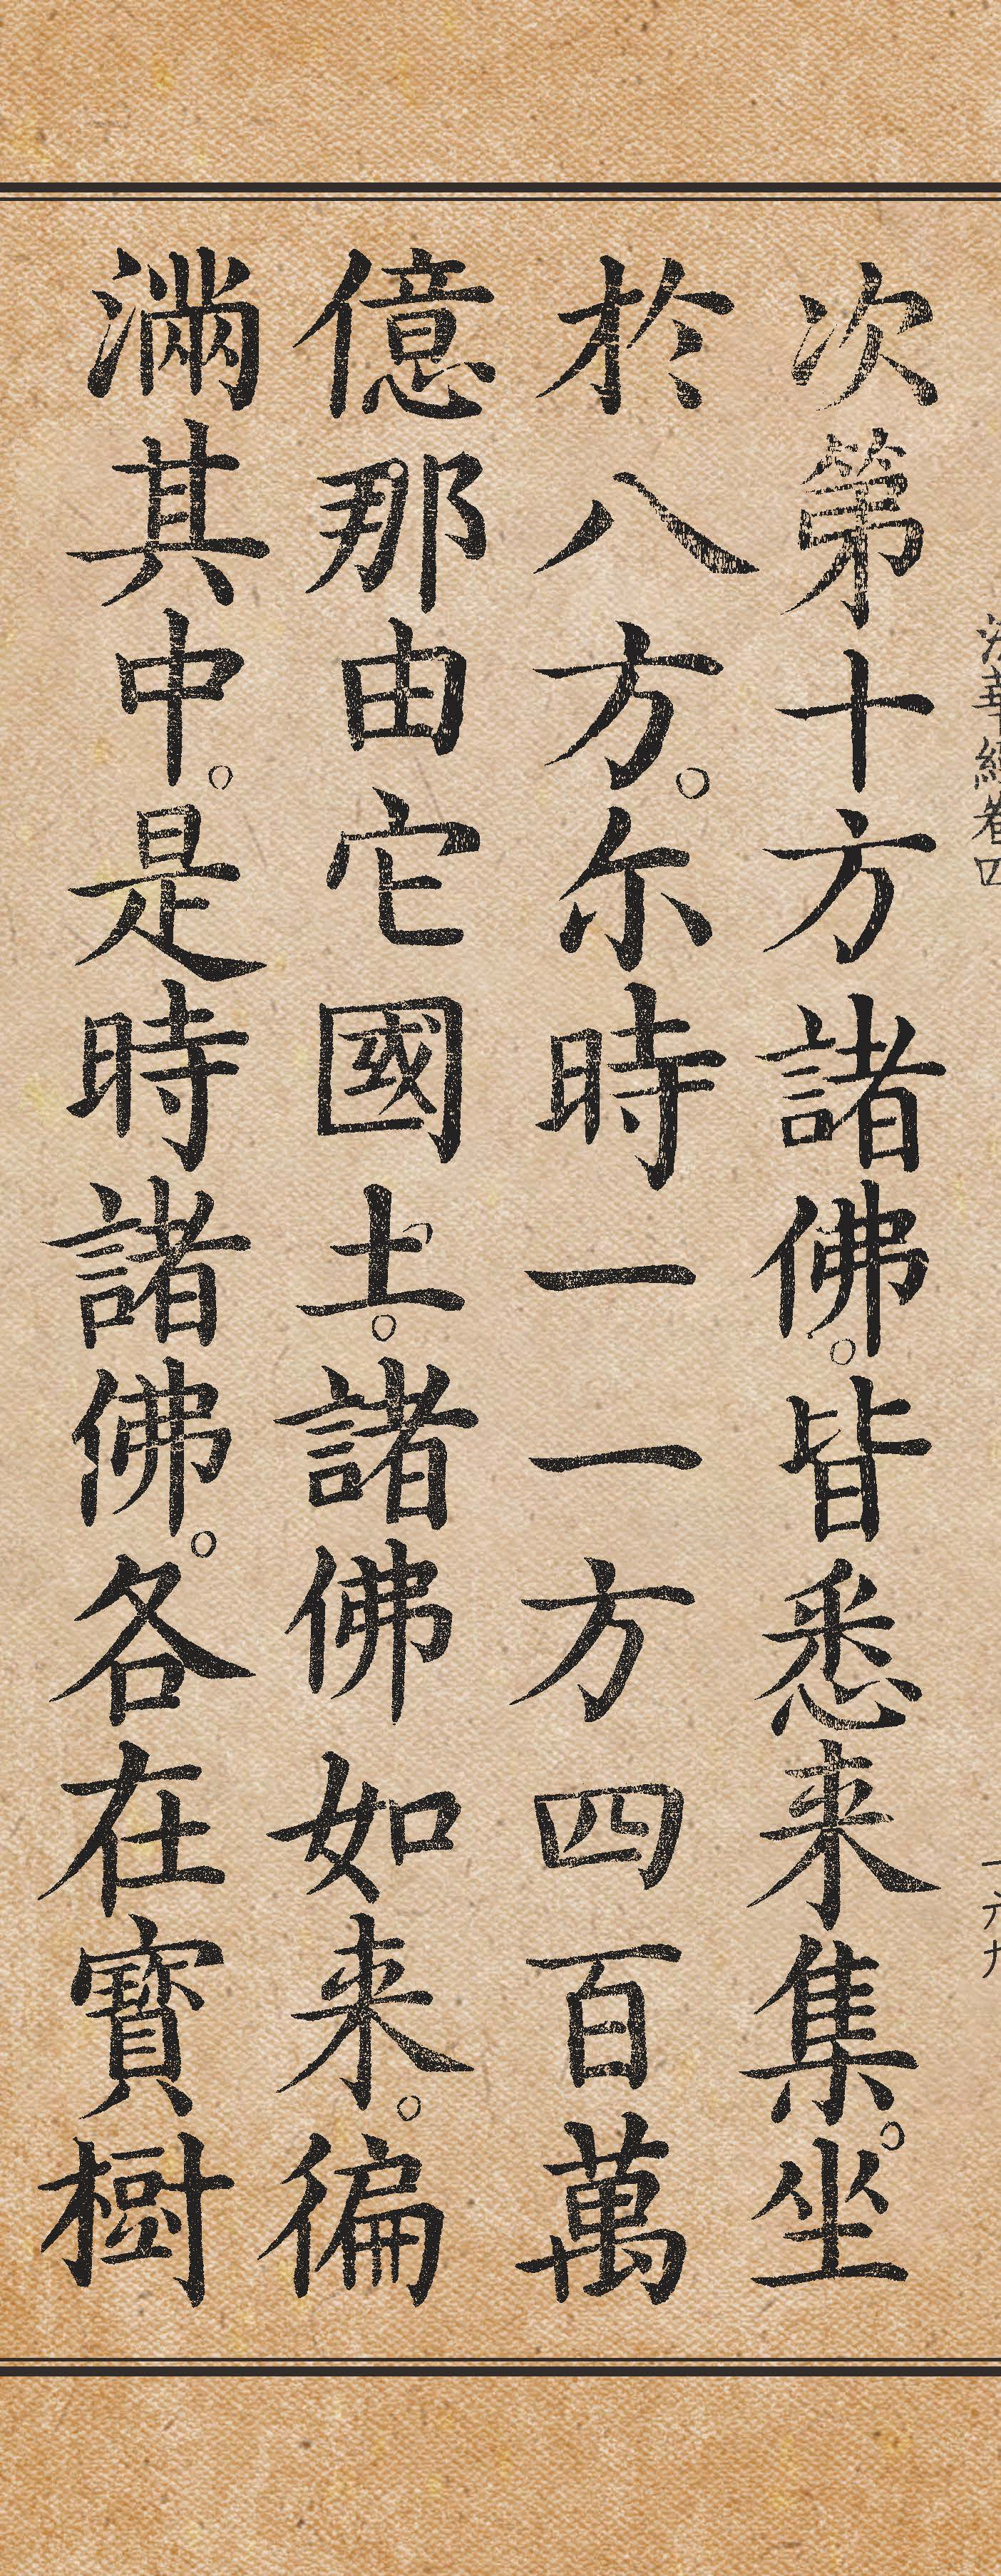 法華經卷四
一六九
次第十方諸佛。皆悉来集。坐
於八方。尔時一一方四百萬
億那由它國土。諸佛如来。徧
滿其中。是時諸佛。各在寶樹